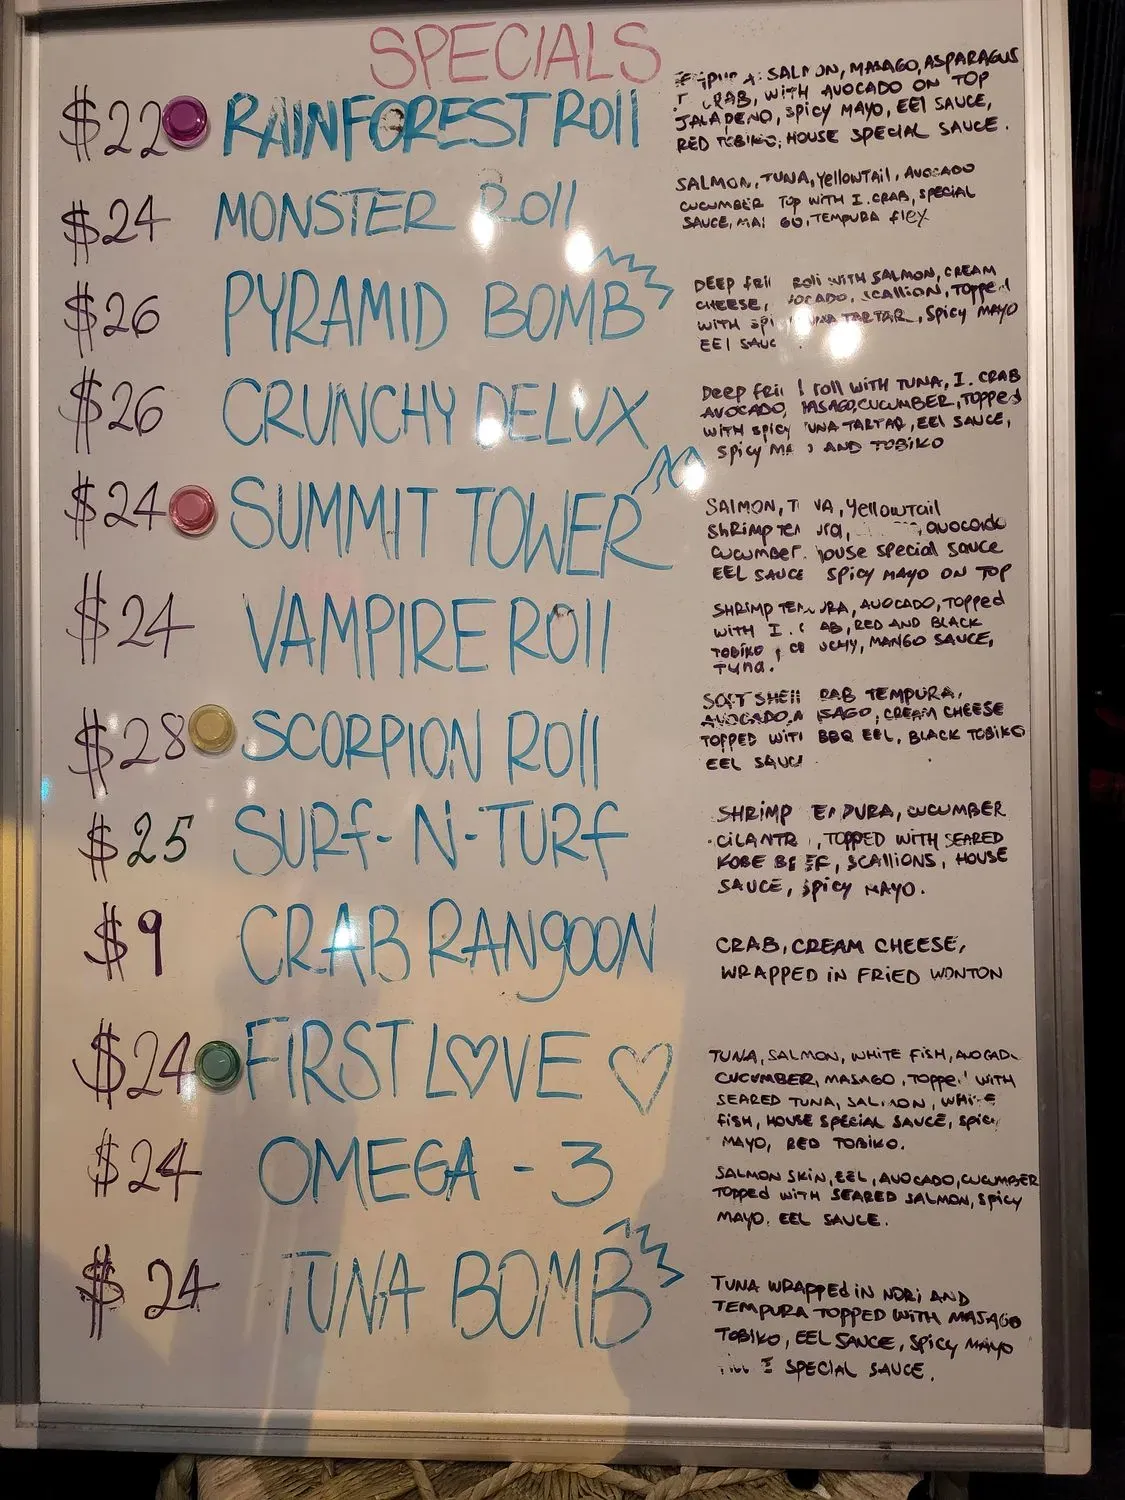 SPECIALS
$22 RAINFOREST ROll
SALMON, MASAGO, ASPARAGUS
CRAB, WITH AVOCADO ON TOP
JALAPENO, SPICY MAYO, EEl SAUCE,
RED TOBIKO, HOUSE SPECIAL SAUCE.
$24 MONSTER Roll
SALMON, TUNA, YellowTail, AVOCADO
CUCUMBER TOP WITH I. CRAB, SPECIAL
SAUCE, TEMPURA flEX
$26 PYRAMID BOMB
DEEP Roll WITH SALMON, CREAM
CHEESE, SCALLION, Topped
WITH TARTAR, SPICY MAYO
EEl SAUC
$26 CRUNCHY DELUX
DEEP roll WITH TUNA, I. CRAB
AVOCADO, MASAGO, CUCUMBER, Topped
WITH SPICY TUNA TARTAR, EEl SAUCE,
SPICY AND TOBIKO
$24 SUMMIT TOWER
SALMON, YellowTail
SHRIMP avocado
CUCUMBER. House special sauce
EEL SAUCE SPICY MAYO ON TOP
$24 VAMPIRE ROll
SHRIMP TEMPURA, AVOCADO, TOPPed
WITH I. RED AND BLACK
TOBIKO, MANGO SAUCE,
Tuna.
$28 SCORPION ROll
SOFT SHEll TEMPURA,
AVOCADO, CREAM CHEESE
TOPPED WITH BBQ EEL, BLACK TOBIKO
EEL SAUC
$25 SURF-N-TURF
SHRIMP TEMPURA, CUCUMBER
CILANTR, TOPPED WITH SEARED
KOBE BEEF, SCALLIONS, HOUSE
SAUCE, SPICY MAYO.
$9 CRAB RANGOON
CRAB, CREAM CHEESE,
WRAPPED IN FRIED WONTON
$24 FIRST LOVE
TUNA, SALMON, WHITE FISH, AVOCAD
CUCUMBER, MASAGO, Topped WITH
SEARED TUNA, SALMON, WHITE
FISH, HOUSE SPECIAL SAUCE, SPICY
MAYO, RED TOBIKO.
$24 OMEGA - 3
SALMON SKIN, EEL, AVOCADO, CUCUMBER
TOPPed WITH SEARED SALMON, SPICY
MAYO. EEL SAUCE.
$24 TUNA BOMB
TUNA WRAPPEd IN NORI AND
TEMPURA TOPPED WITH MASAGO
TOBIKO, EEL SANCE, SPICY MAYO
SPECIAL SAUCE.